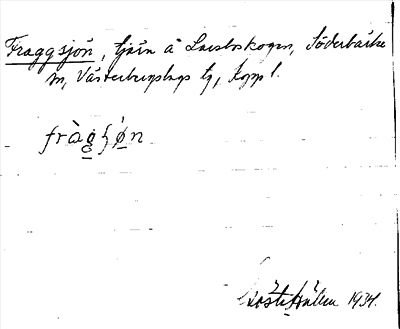 Fraggsjön, tjärn å Larsboskogen, Söderbärke
sn, Västerbergslags tg, Kopp l.
fràgʃøn
Gösta Hallén 1934.